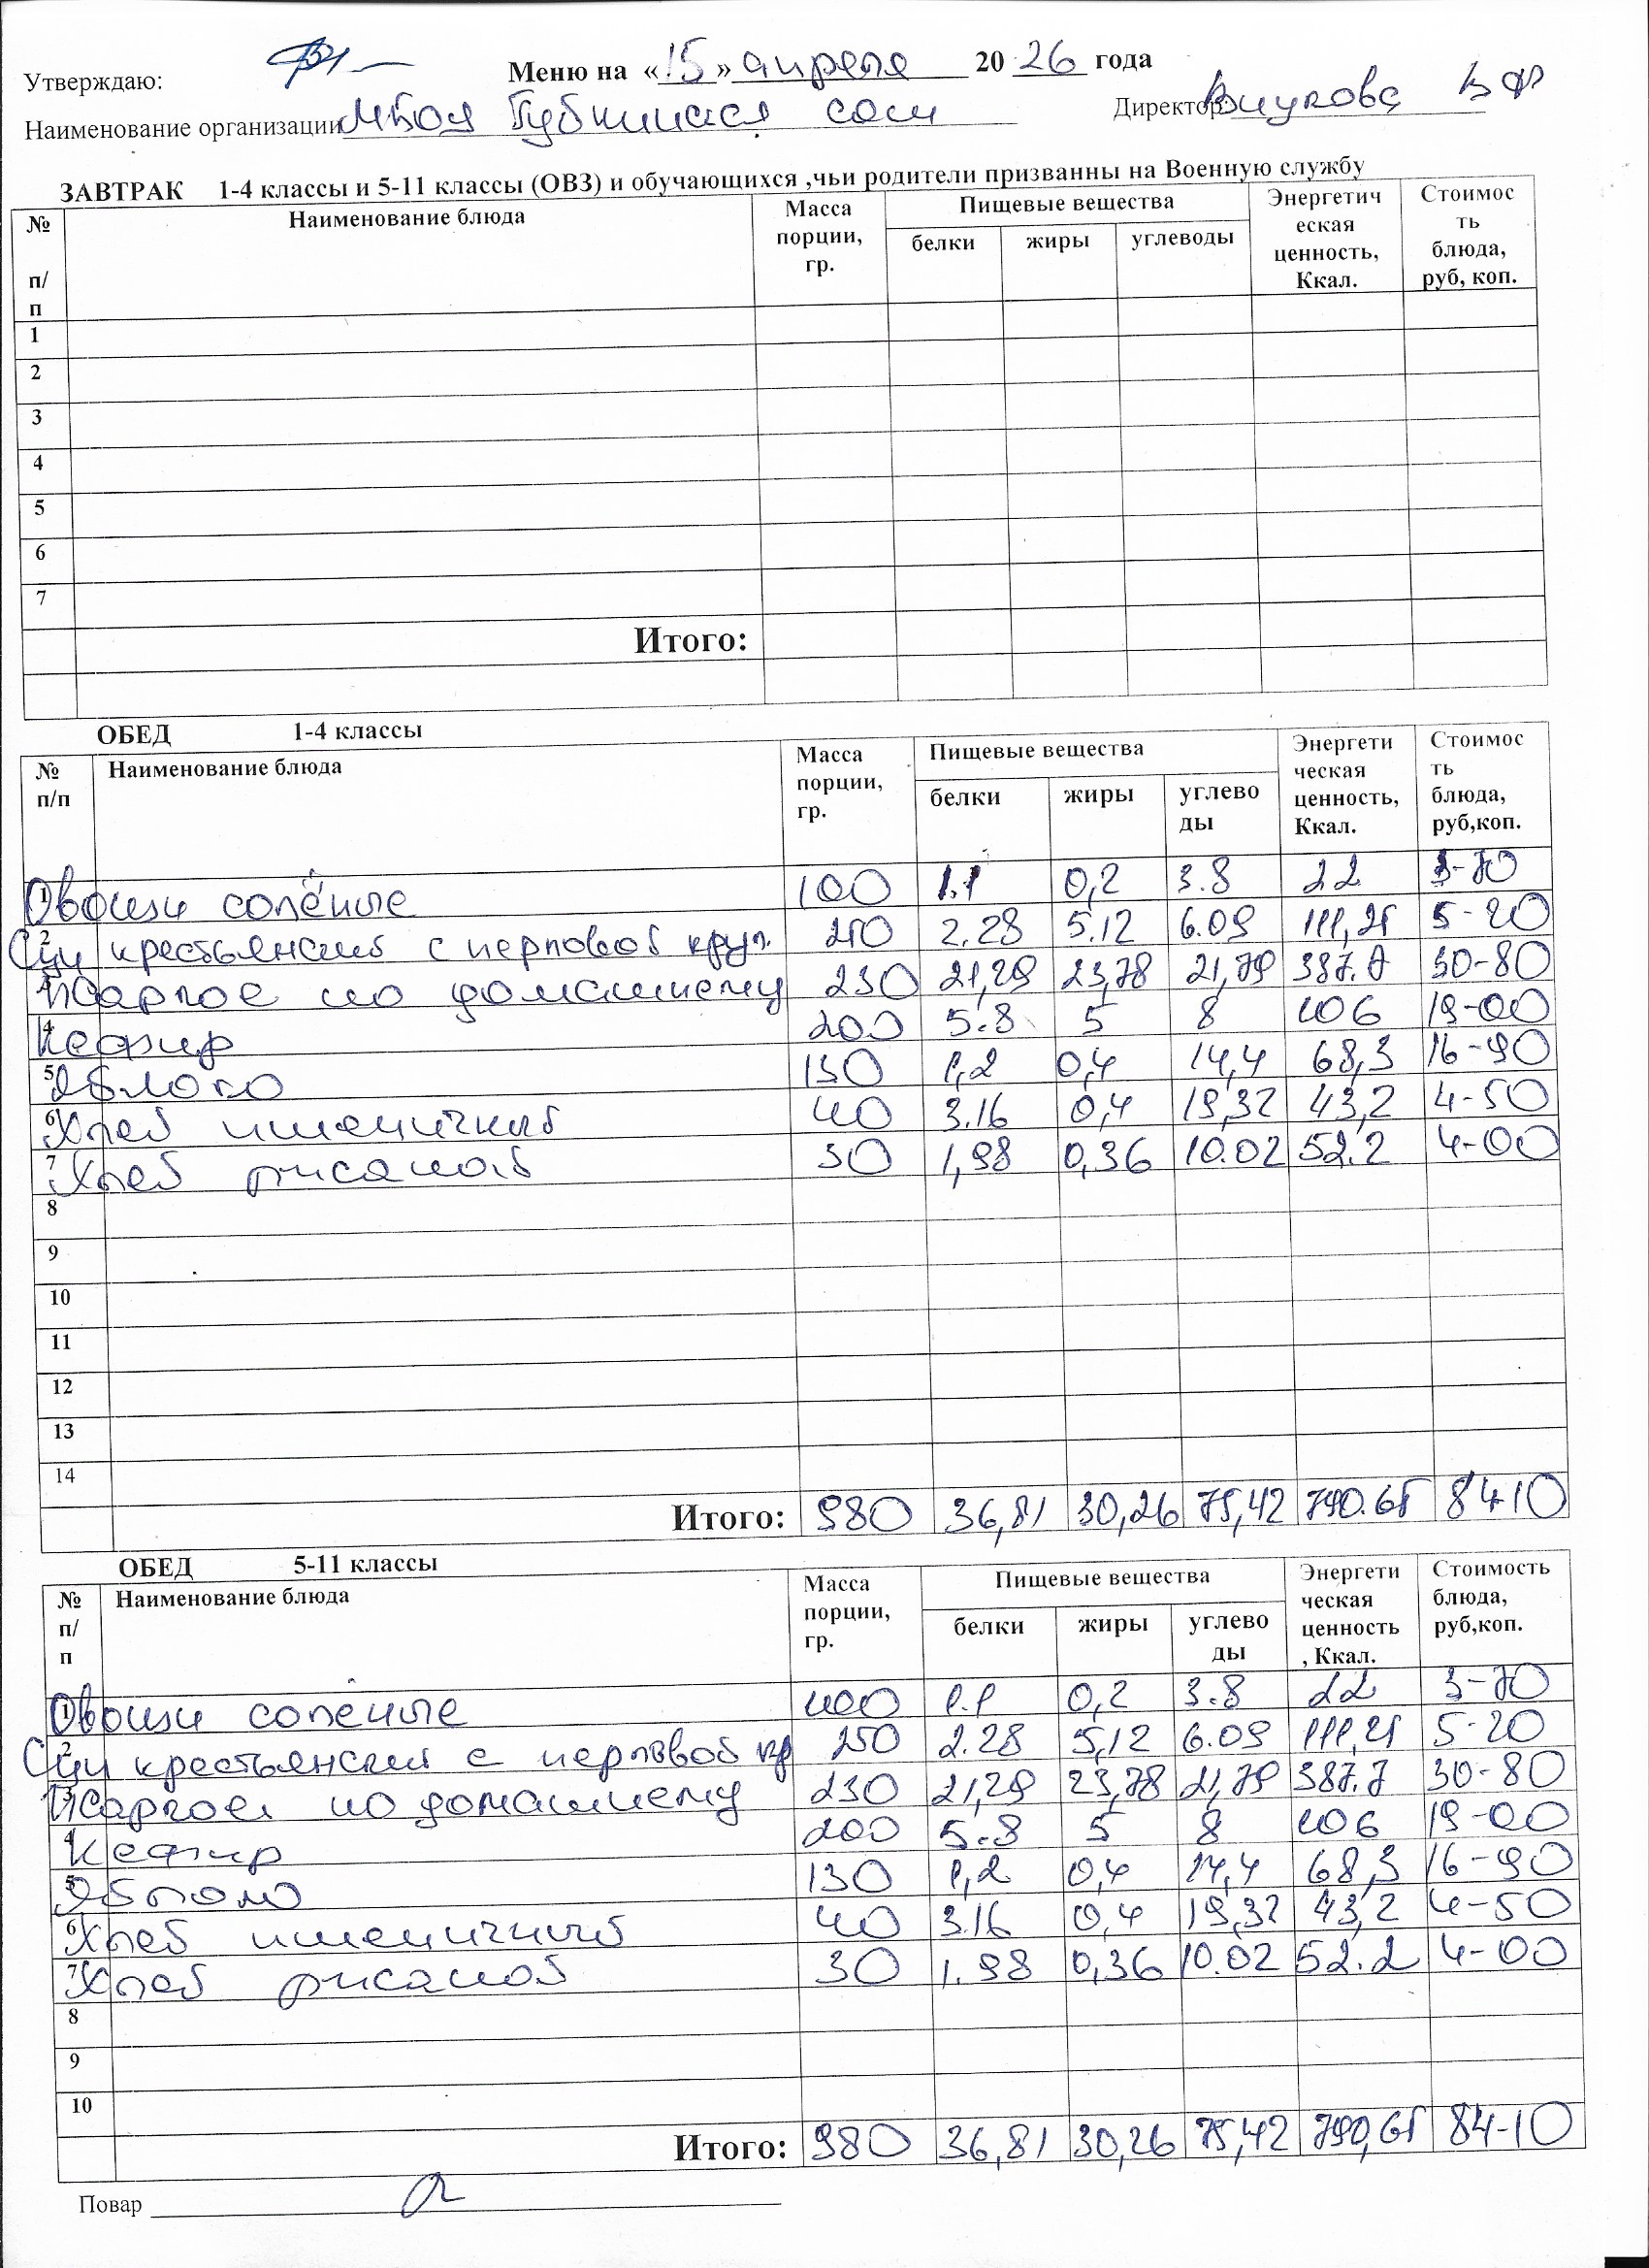 Утверждаю:
Меню на «15» апреля 2026 года
Наименование организации МБОУ сош Директор: В Ф
ЗАВТРАК 1-4 классы и 5-11 классы (ОВЗ) и обучающихся ,чьи родители призванны на Военную службу
№ п/п Наименование блюда Масса порции, гр. Пищевые вещества Энергетическая ценность, Ккал. Стоимость блюда, руб, коп.
белки жиры углеводы
1
2
3
4
5
6
7
Итого:
ОБЕД 1-4 классы
№ п/п Наименование блюда Масса порции, гр. Пищевые вещества Энергетическая ценность, Ккал. Стоимость блюда, руб,коп.
белки жиры углеводы
1 Овощи солёные 100 1.1 0,2 3.8 22 3-70
2 Щи крестьянский с перловой круп. 250 2.28 5.12 6.09 111,25 5-20
3 Жаркое по домашнему 230 21,29 23,78 21,79 387.7 30-80
4 Кефир 200 5.8 5 8 106 19-00
5 Яблоко 130 1,2 0,4 14,4 68,3 16-90
6 Хлеб пшеничный 40 3.16 0,4 19,32 43,2 4-50
7 Хлеб ржаной 30 1,98 0,36 10.02 52.2 4-00
8
9
10
11
12
13
14
Итого: 980 36,81 30,26 75,42 790.65 84-10
ОБЕД 5-11 классы
№ п/п Наименование блюда Масса порции, гр. Пищевые вещества Энергетическая ценность, Ккал. Стоимость блюда, руб,коп.
белки жиры углеводы
1 Овощи соленые 100 1.1 0,2 3.8 22 3-70
2 Щи крестьянский с перловой кр 250 2.28 5,12 6.09 111,25 5-20
3 Жаркое по домашнему 230 21,29 23,78 21,79 387.7 30-80
4 Кефир 200 5.8 5 8 106 19-00
5 Яблоко 130 1,2 0,4 14,4 68,3 16-90
6 Хлеб пшеничный 40 3.16 0,4 19,32 43,2 4-50
7 Хлеб ржаной 30 1.98 0,36 10.02 52.2 4-00
8
9
10
Итого: 980 36,81 30,26 75,42 790,65 84-10
Повар